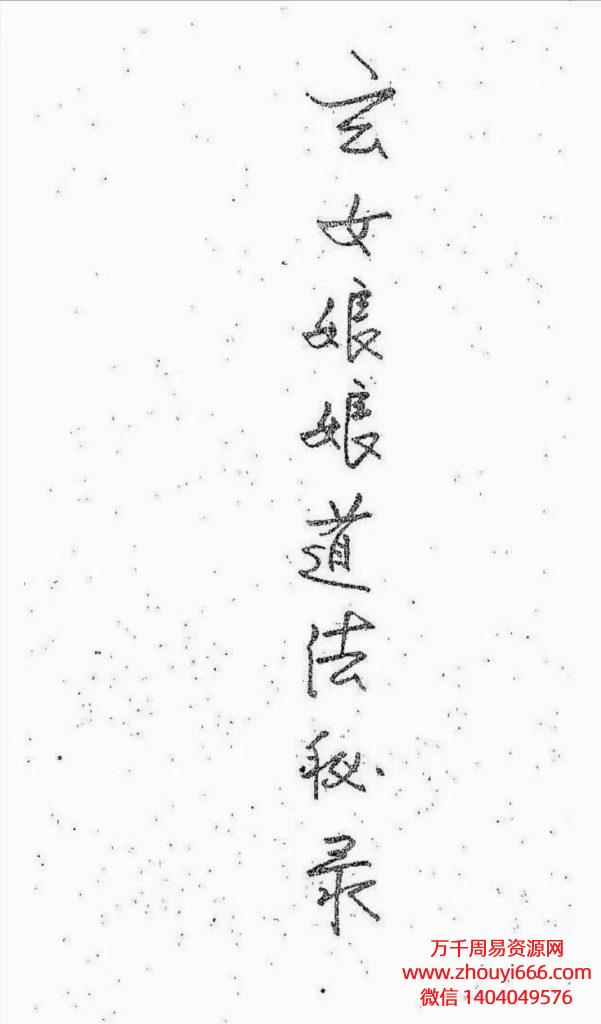 玄女娘娘道法秘录
万千周易资源网
www.zhouyi666.com
微信 1404049576